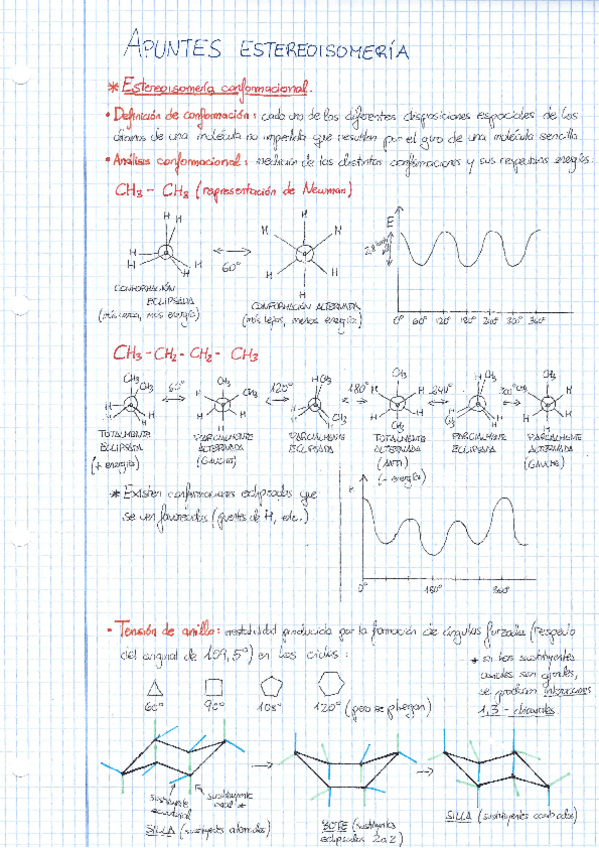 APUNTES ESTEREOISOMERÍA
* Estereoisomería conformacional.
• Definición de conformación: cada una de las diferentes disposiciones espaciales de los
átomos de una molécula no impedida que resulten por el giro de una molécula sencilla
• Análisis conformacional: medición de las distintas conformaciones y sus respectivas energías:
CH3 - CH3 (representación de Newman)
60°
CONFORMACIÓN
ECLIPSADA
(más cerca, más energía)
CONFORMACIÓN ALTERNADA
(más lejos, menos energía)
E
0° 60° 120° 180° 240° 300° 360°
CH3 - CH2 - CH2 - CH3
60° 120° 180° 240° 300°
TOTALMENTE
ECLIPSADA
(+ energía)
PARCIALMENTE
ALTERNADA
(GAUCHE)
PARCIALMENTE
ECLIPSADA
TOTALMENTE
ALTERNADA
(ANTI)
(- energía)
PARCIALMENTE
ECLIPSADA
PARCIALMENTE
ALTERNADA
(GAUCHE)
* Existen conformaciones eclipsadas que
se ven favorecidas (puentes de H, etc.)
0° 180° 360°
• Tensión de anillo: inestabilidad producida por la formación de ángulos forzados (respecto
del original de 109,5°) en los ciclos:
60° 90° 108° 120° (pero se pliegan)
* si los sustituyentes
axiales son grandes,
se producen interacciones
1,3 - diaxiales
sustituyente
ecuatorial
sustituyente
axial *
SILLA (sustituyentes alternados)
BOTE (sustituyentes
eclipsados 2 a 2)
SILLA (sustituyentes cambiados)